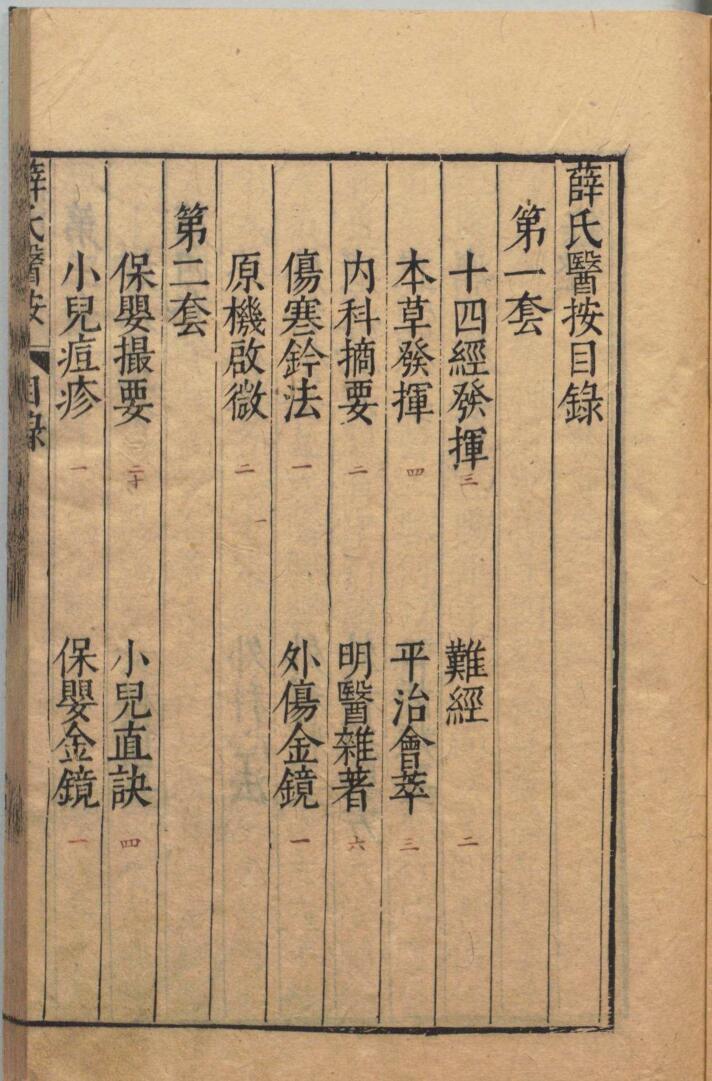 薛氏醫按目錄
第一套
十四經發揮 三 難經 二
本草發揮 四 平治會萃 三
內科摘要 二 明醫雜著 六
傷寒鈐法 一 外傷金鏡 一
原機啟微 二
第二套
保嬰撮要 二十 小兒直訣 四
小兒痘疹 一 保嬰金鏡 一
薛氏醫按 目錄